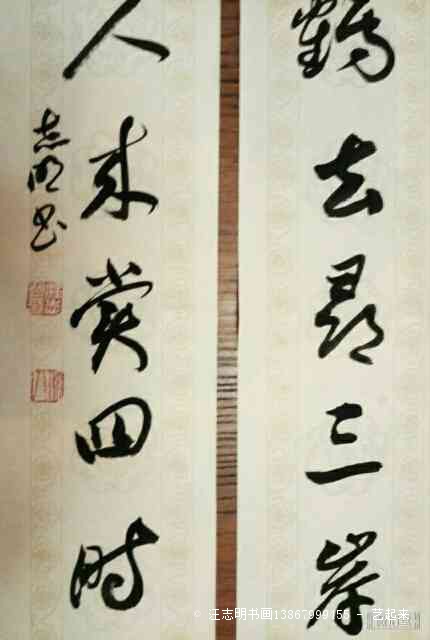 鶴去尋三
人来赏四时
志明书
© 汪志明书画13867999155 — 艺起来